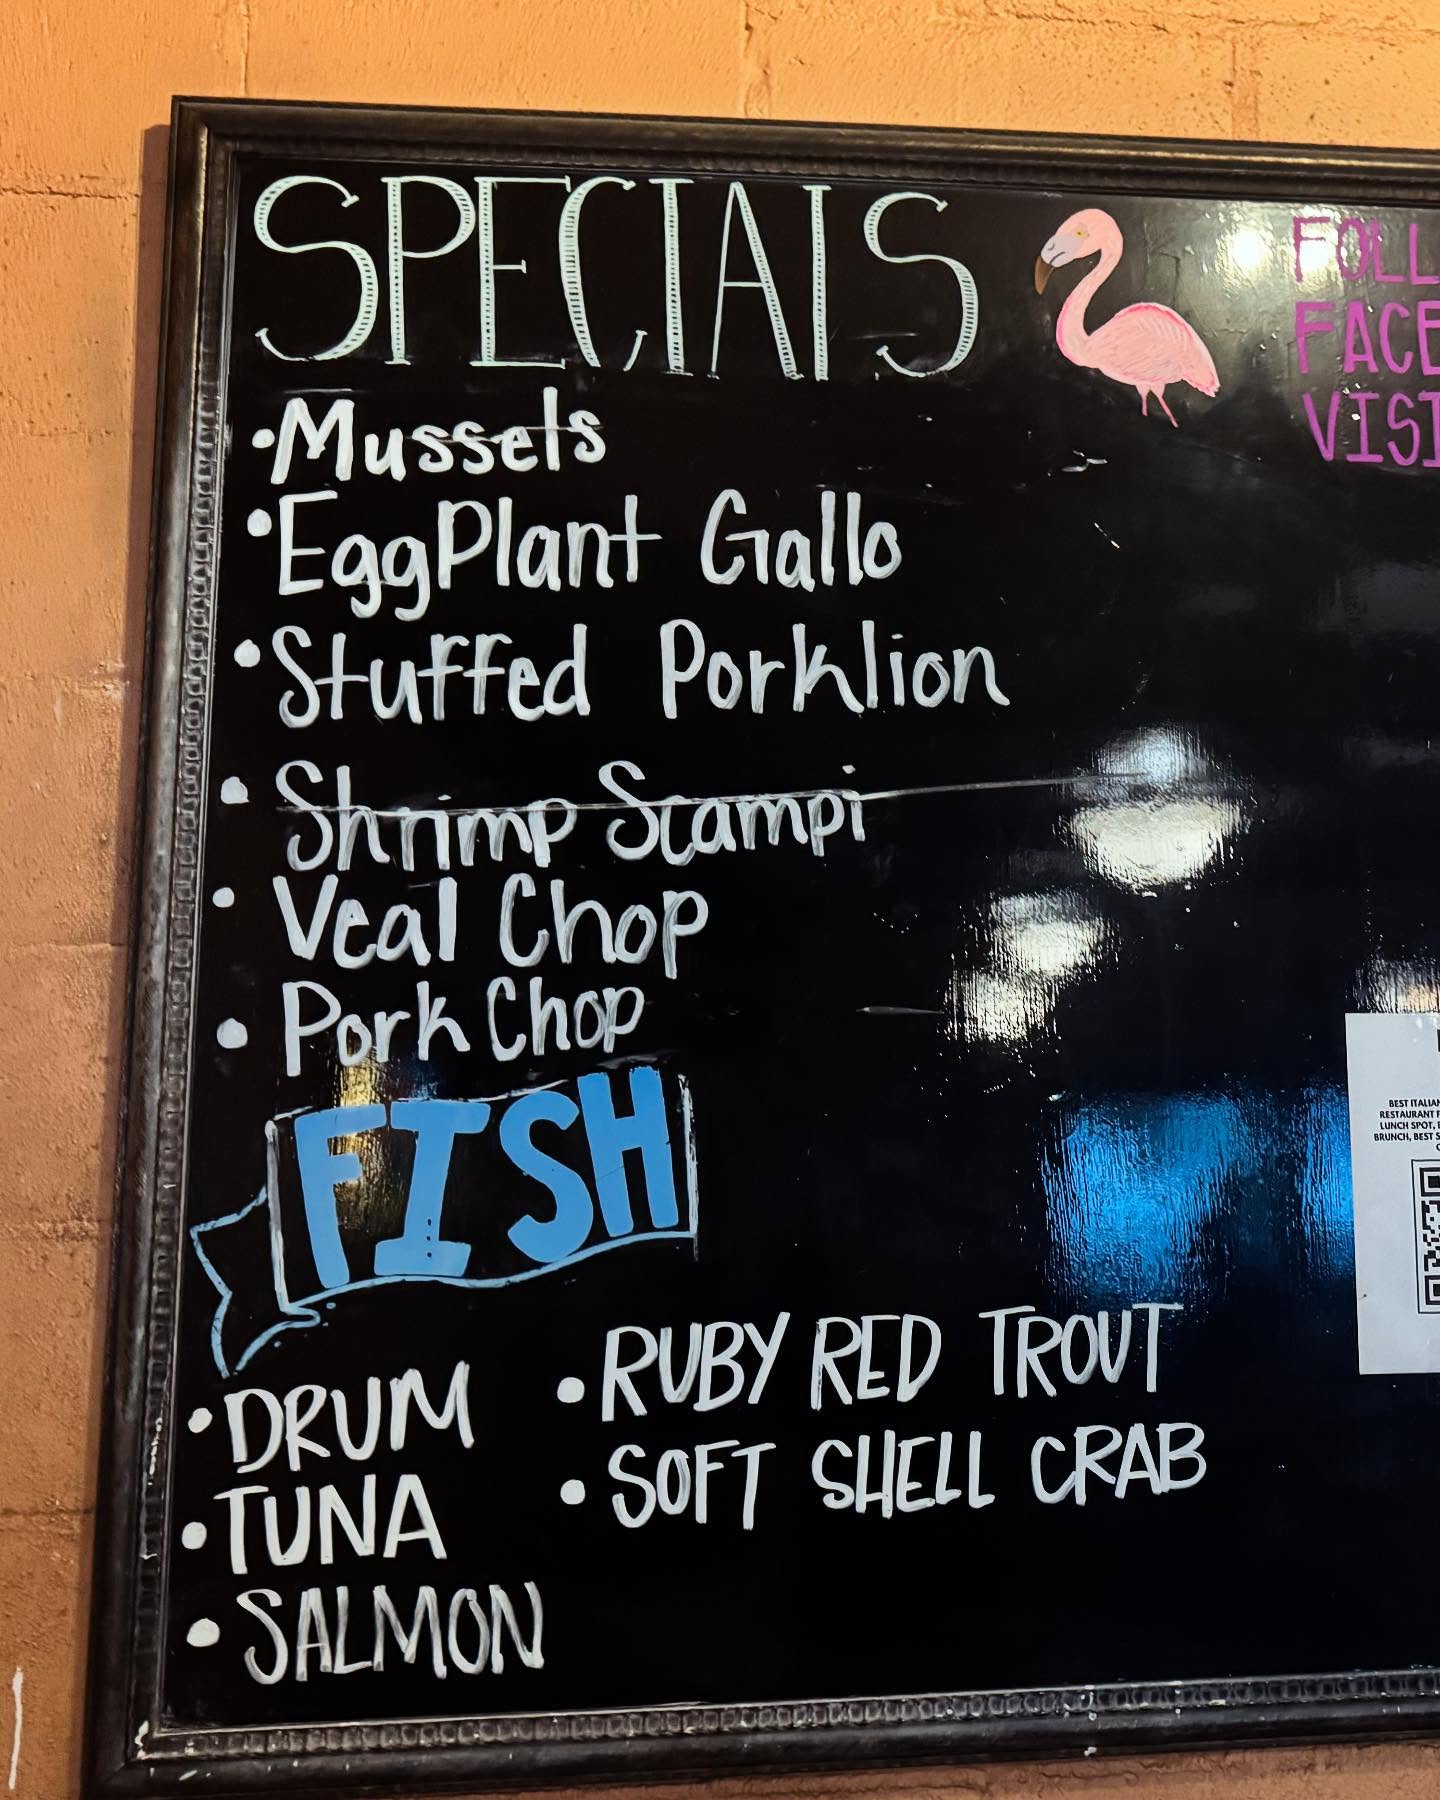 SPECIALS
FOLL
FACE
VISI
•Mussels
•EggPlant Gallo
•Stuffed Porklion
• Shrimp Scampi
• Veal Chop
• Pork Chop
FISH
•DRUM
•TUNA
•SALMON
•RUBY RED TROUT
•SOFT SHELL CRAB
BEST ITALIAN
RESTAURANT F
LUNCH SPOT,
BRUNCH, BEST S